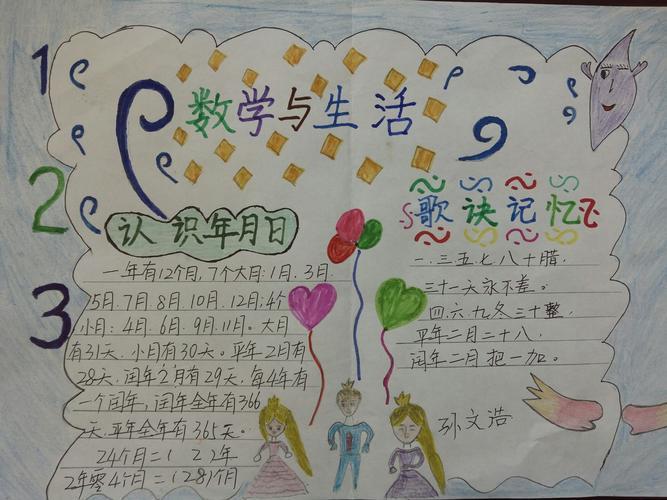 1
2
3
数学与生活
认识年月日
一年有12个月,7个大月:1月.3月.
5月.7月.8月.10月.12月;4个
小月:4月.6月.9月.11月。大月
有31天.小月有30天。平年2月有
28天.闰年2月有29天,每4年有
一个闰年,闰年全年有366
天.平年全年有365天。
24个月=( 2 2年
2年零4个月=(28)个月
歌诀记忆
一.三五.七八十腊.
三十一天永不差。
四.六.九冬三十整.
平年二月二十八.
闰年二月把一加。
孙文浩